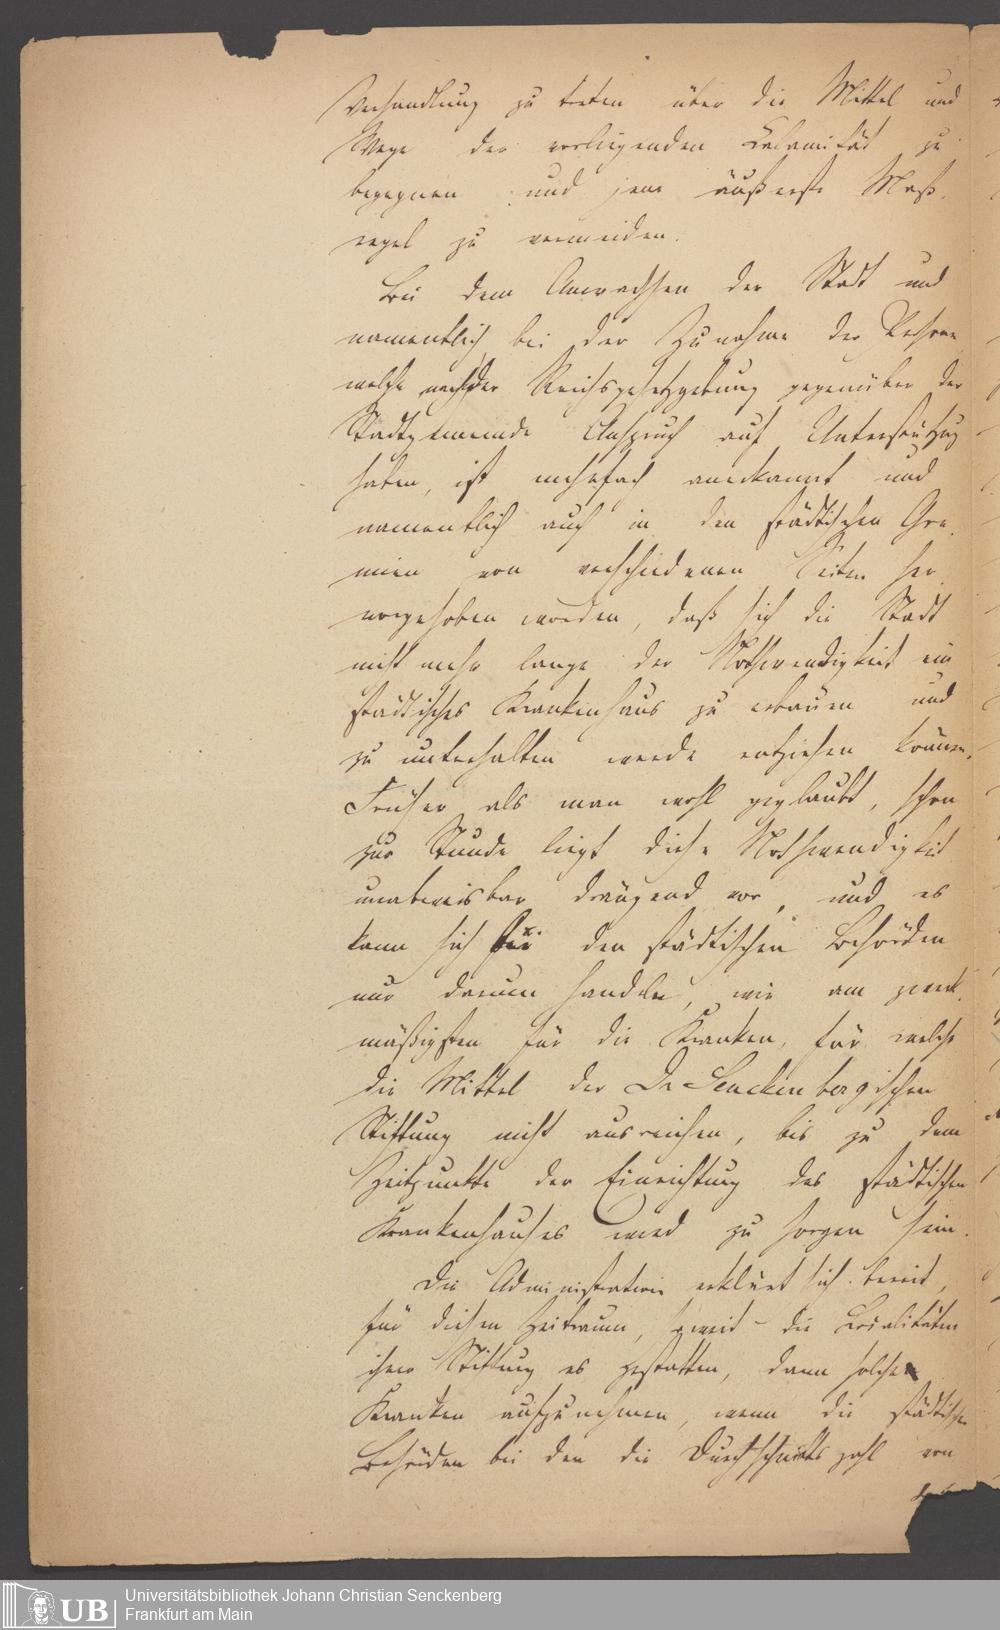 Verhandlung zu treten über die Mittel und
Wege der vorliegenden Calamität zu
begegnen und jene äußerste Maß-
regel zu vermeiden.
Bei dem Anwachsen der Stadt und
namentlich bei der Zunahme der Personen
welche nach der Reichsgesetzgebung gegenüber der
Stadtgemeinde Anspruch auf Unterstützung
haben, ist mehrfach anerkannt und
namentlich auch in den städtischen Gre-
mien von verschiedenen Seiten her
vorgehoben worden, daß sich die Stadt
nicht mehr lange der Nothwendigkeit ein
städtisches Krankenhaus zu erbauen und
zu unterhalten werde entziehen können.
Früher als man wohl geglaubt, schon
zur Stunde liegt diese Nothwendigkeit
unabweisbar drängend vor, und es
kann sich für den städtischen Behörden
nur darum handeln, wie am zweck-
mäßigsten für die Kranken, für welche
die Mittel der Dr Senckenbergischen
Stiftung nicht ausreichen, bis zu dem
Zeitpunkte der Einrichtung des städtischen
Krankenhauses wird zu sorgen sein.
Die Administration erklärt sich bereit,
für diesen Zeitraum, soweit die Localitäten
ihrer Stiftung es gestatten, dann solche
Kranken aufzunehmen, wenn die städtischen
Behörden bei den die Durchschnittszahl von
Universitätsbibliothek Johann Christian Senckenberg
Frankfurt am Main
UB